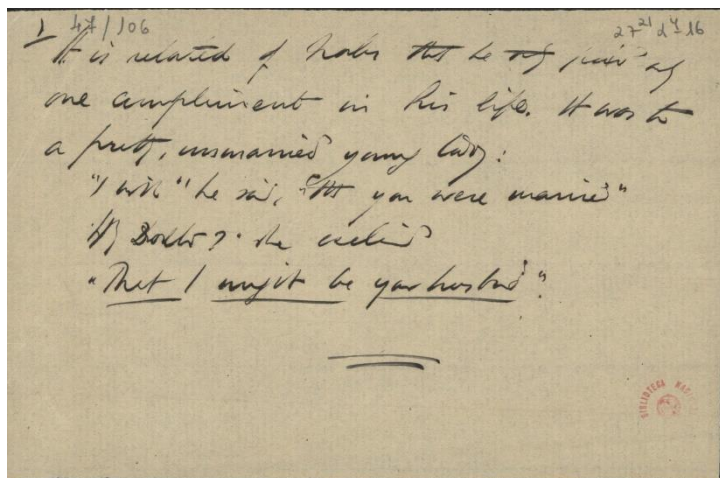 1 47/106
27²¹ d⁴ 16
It is related of that he only paid
one compliment in his life. It was to
a pretty, unmarried young lady:
"I wish" he said, "that you were married"
Why Doctor? she
"That I might be your husband".
BIBLIOTECA NAC